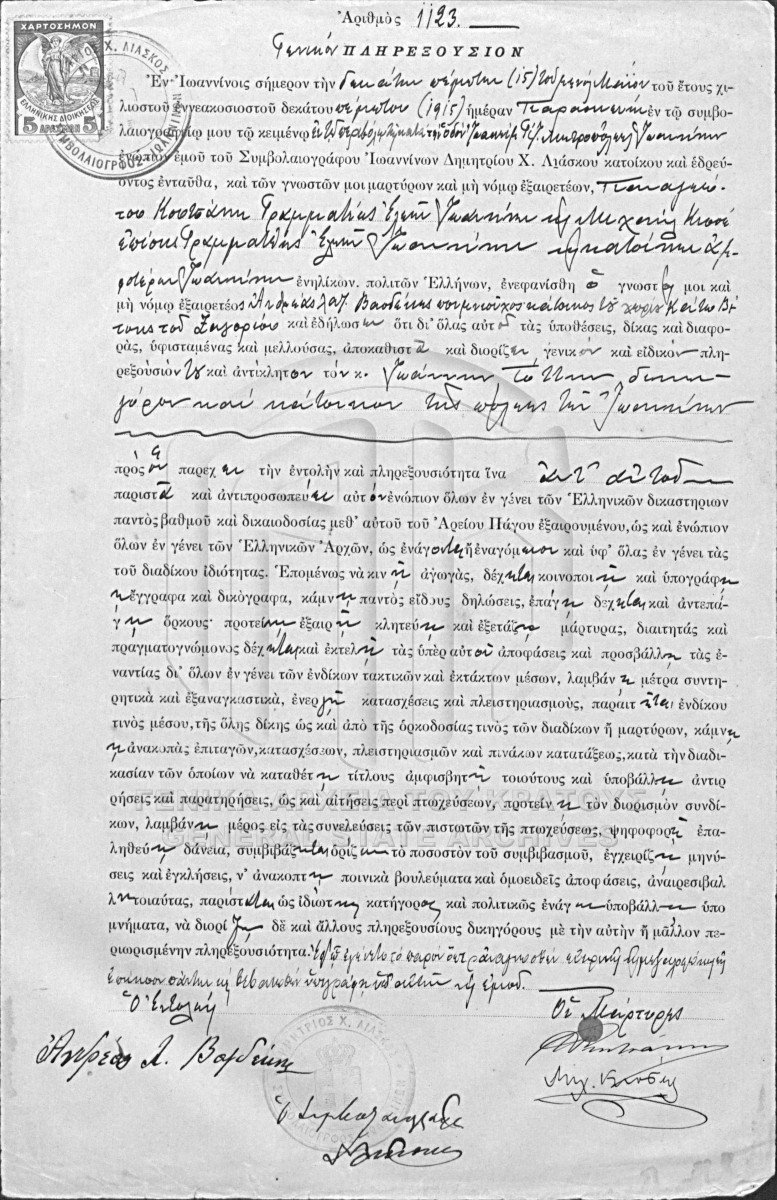 Ἀριθμὸς 1123.
Γενικὸν ΠΛΗΡΕΞΟΥΣΙΟΝ
ΧΑΡΤΟΣΗΜΟΝ
ΕΛΛΗΝΙΚΗΣ ΔΙΟΙΚΗΣΕΩΣ
5 ΔΡΑΧΜΑΙ 5
Ἐν Ἰωαννίνοις σήμερον τὴν δεκάτην πέμπτην (15) τοῦ μηνὸς Μαΐου τοῦ ἔτους χι-
λιοστοῦ ἐννεακοσιοστοῦ δεκάτου πέμπτου (1915) ἡμέραν Παρασκευὴν ἐν τῷ συμβο-
λαιογραφείῳ μου τῷ κειμένῳ
ἐνώπιον ἐμοῦ τοῦ Συμβολαιογράφου Ἰωαννίνων Δημητρίου Χ. Λιάσκου κατοίκου καὶ ἑδρεύ-
οντος ἐνταῦθα, καὶ τῶν γνωστῶν μοι μαρτύρων καὶ μὴ νόμῳ ἐξαιρετέων, Παναγιώ-
του
ἐνηλίκων. πολιτῶν Ἑλλήνων, ἐνεφανίσθη ὁ γνωστός μοι καὶ
μὴ νόμῳ ἐξαιρετέος
τοῦ Ζαγορίου καὶ ἐδήλωσεν ὅτι δι' ὅλας αὐτοῦ τὰς ὑποθέσεις, δίκας καὶ διαφο-
ράς, ὑφισταμένας καὶ μελλούσας, ἀποκαθιστᾷ καὶ διορίζει, γενικὸν καὶ εἰδικὸν πλη-
ρεξούσιόν του καὶ ἀντίκλητον τὸν κ. Ἰωάννην δικη-
γόρον καὶ κάτοικον τῆς πόλεως τῶν Ἰωαννίνων
πρὸς ὃν παρέχει τὴν ἐντολὴν καὶ πληρεξουσιότητα ἵνα ἀντ' αὐτοῦ
παριστᾷ καὶ ἀντιπροσωπεύει αὐτὸν ἐνώπιον ὅλων ἐν γένει τῶν Ἑλληνικῶν δικαστηρίων
παντὸς βαθμοῦ καὶ δικαιοδοσίας μεθ' αὐτοῦ τοῦ Ἀρείου Πάγου ἐξαιρουμένου, ὡς καὶ ἐνώπιον
ὅλων ἐν γένει τῶν Ἑλληνικῶν Ἀρχῶν, ὡς ἐνάγοντα ἢ ἐναγόμενον καὶ ὑφ' ὅλας ἐν γένει τὰς
τοῦ διαδίκου ἰδιότητας. Ἑπομένως νὰ κινῇ ἀγωγάς, δέχηται κοινοποιῇ καὶ ὑπογράφῃ
ἔγγραφα καὶ δικόγραφα, κάμνῃ παντὸς εἴδους δηλώσεις, ἐπάγῃ δέχηται καὶ ἀντεπά-
γῃ ὅρκους· προτείνῃ ἐξαιρῇ κλητεύῃ καὶ ἐξετάζῃ μάρτυρας, διαιτητὰς καὶ
πραγματογνώμονος δέχηται καὶ ἐκτελῇ τὰς ὑπὲρ αὐτοῦ ἀποφάσεις καὶ προσβάλλῃ τὰς ἐ-
ναντίας δι' ὅλων ἐν γένει τῶν ἐνδίκων τακτικῶν καὶ ἐκτάκτων μέσων, λαμβάνῃ μέτρα συντη-
ρητικὰ καὶ ἐξαναγκαστικά, ἐνεργῇ κατασχέσεις καὶ πλειστηριασμούς, παραιτῆται ἐνδίκου
τινὸς μέσου, τῆς ὅλης δίκης ὡς καὶ ἀπὸ τῆς ὁρκοδοσίας τινὸς τῶν διαδίκων ἢ μαρτύρων, κάμνῃ
ἀνακοπὰς ἐπιταγῶν, κατασχέσεων, πλειστηριασμῶν καὶ πινάκων κατατάξεως, κατὰ τὴν διαδι-
κασίαν τῶν ὁποίων νὰ καταθέτῃ τίτλους ἀμφισβητῇ τοιούτους καὶ ὑποβάλλῃ ἀντιρ-
ρήσεις καὶ παρατηρήσεις, ὡς καὶ αἰτήσεις περὶ πτωχεύσεων, προτείνῃ τὸν διορισμὸν συνδί-
κων, λαμβάνῃ μέρος εἰς τὰς συνελεύσεις τῶν πιστωτῶν τῆς πτωχεύσεως, ψηφοφορῇ ἐπα-
ληθεύῃ δάνεια, συμβιβάζηται ὁρίζῃ τὸ ποσοστὸν τοῦ συμβιβασμοῦ, ἐγχειρίζῃ μηνύ-
σεις καὶ ἐγκλήσεις, ν' ἀνακόπτῃ ποινικὰ βουλεύματα καὶ ὁμοειδεῖς ἀποφάσεις, ἀναιρεσιβάλ-
λῃ τοιαύτας, παρίσταται ὡς ἰδιώτης κατήγορος καὶ πολιτικῶς ἐνάγων ὑποβάλλῃ ὑπο-
μνήματα, νὰ διορίζῃ δὲ καὶ ἄλλους πληρεξουσίους δικηγόρους μὲ τὴν αὐτὴν ἢ μᾶλλον πε-
ριωρισμένην πληρεξουσιότητα. Ἐφ' ᾧ ἐγένετο τὸ παρὸν
Ὁ Ἐντολεὺς Οἱ Μάρτυρες
Ὁ Συμβολαιογράφος
ΓΕΝΙΚΑ ΑΡΧΕΙΑ ΤΟΥ ΚΡΑΤΟΥΣ
GENERAL STATE ARCHIVES